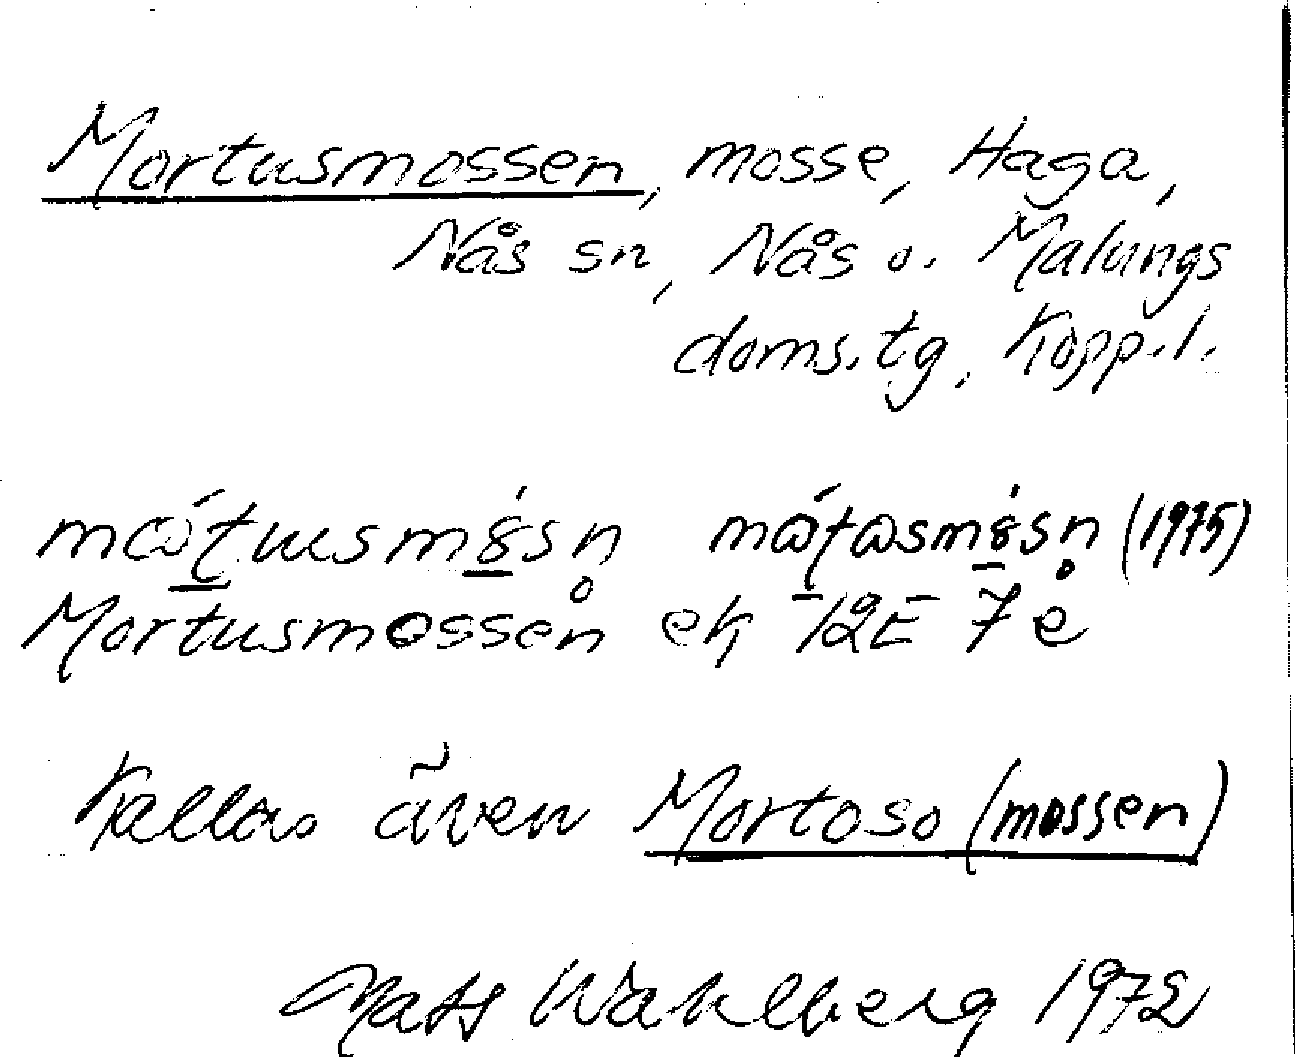 Mortusmossen, mosse, Haga,
Nås sn, Nås o. Malungs
doms.tg, Kopp.l.
(1975)
Mortusmossen ek 12E 7e
Kallas även Mortoso (mossen)
Mats Wahlberg 1972